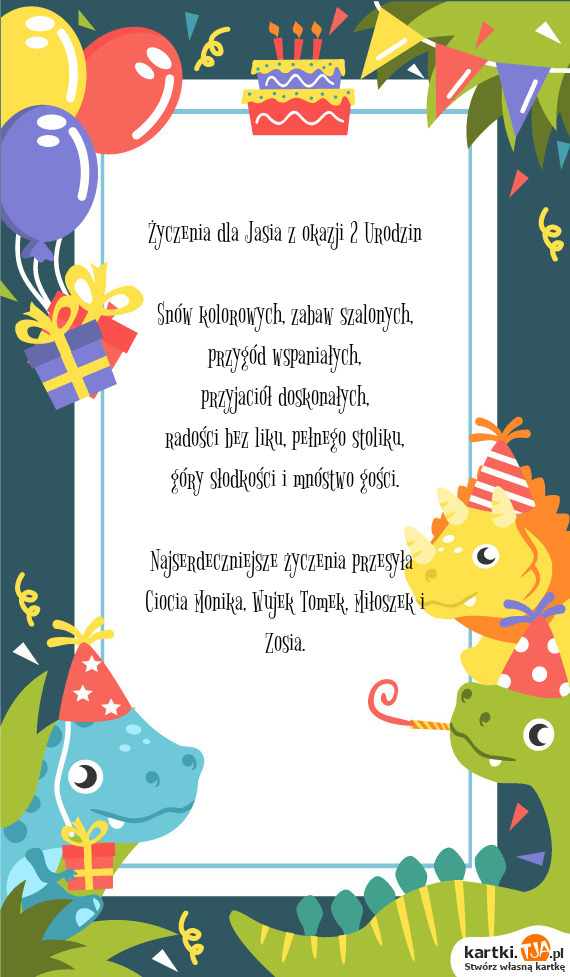 Życzenia dla Jasia z okazji 2 Urodzin
Snów kolorowych, zabaw szalonych,
przygód wspaniałych,
przyjaciół doskonałych,
radości bez liku, pełnego stoliku,
góry słodkości i mnóstwo gości.
Najserdeczniejsze życzenia przesyła
Ciocia Monika, Wujek Tomek, Miłoszek i
Zosia.
kartki.TJA.pl
Stwórz własną kartkę